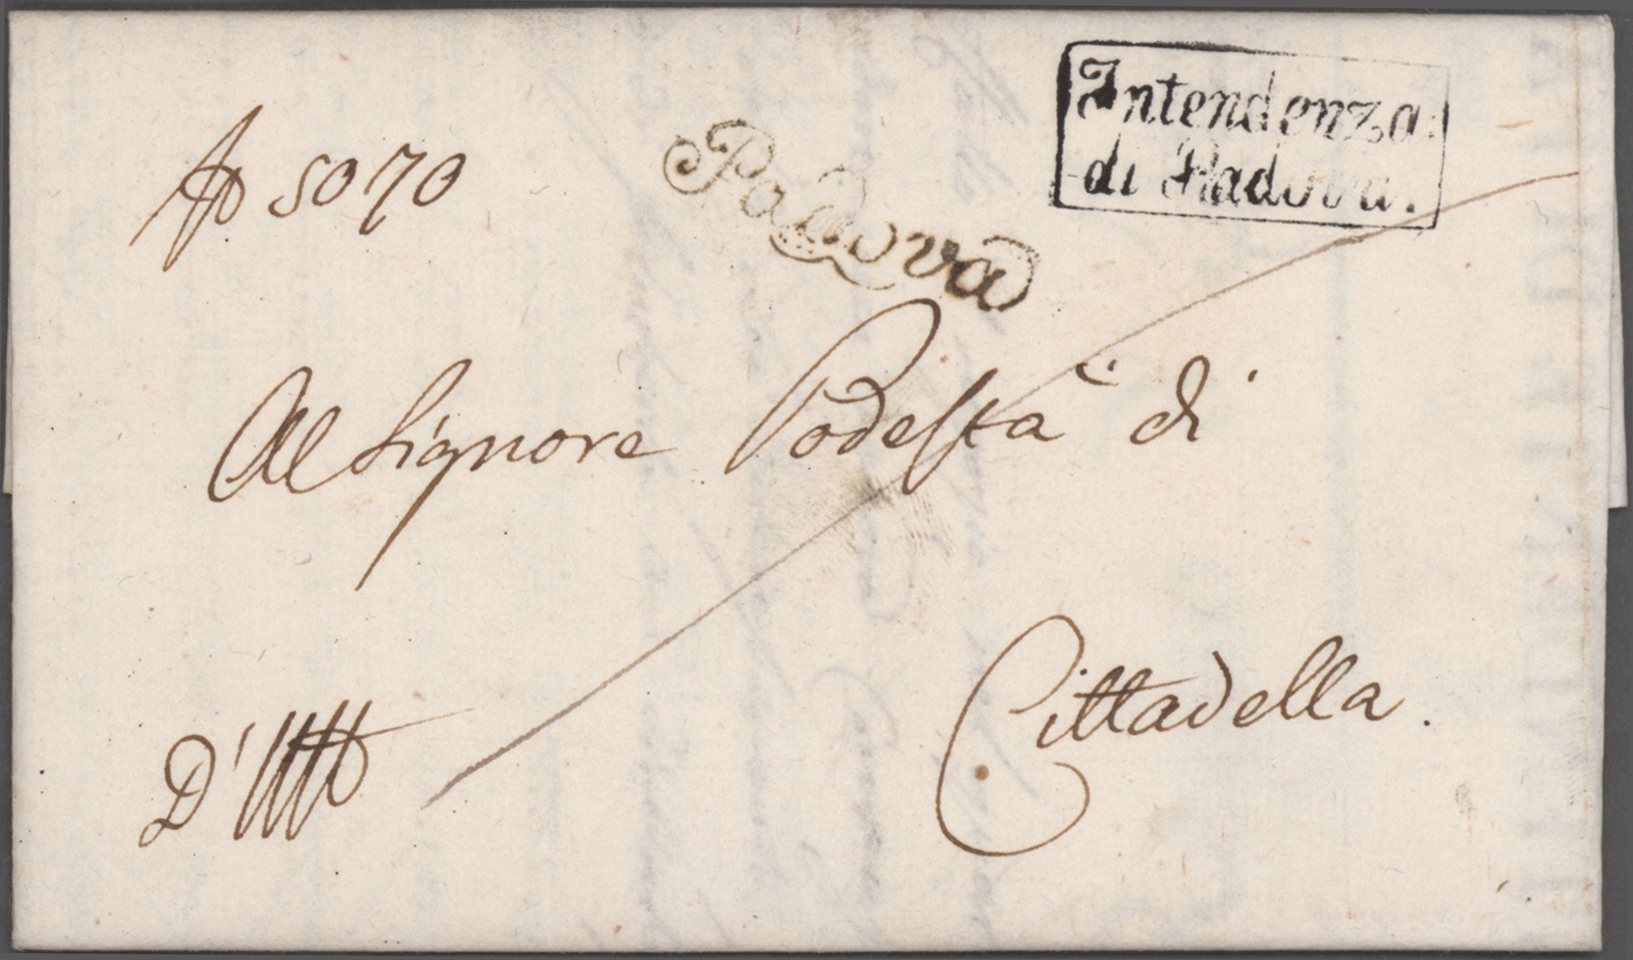 Intendenza.
di Padova.
Padova
No 5070
Al Signore Podestà di
Cittadella.
D'Uff